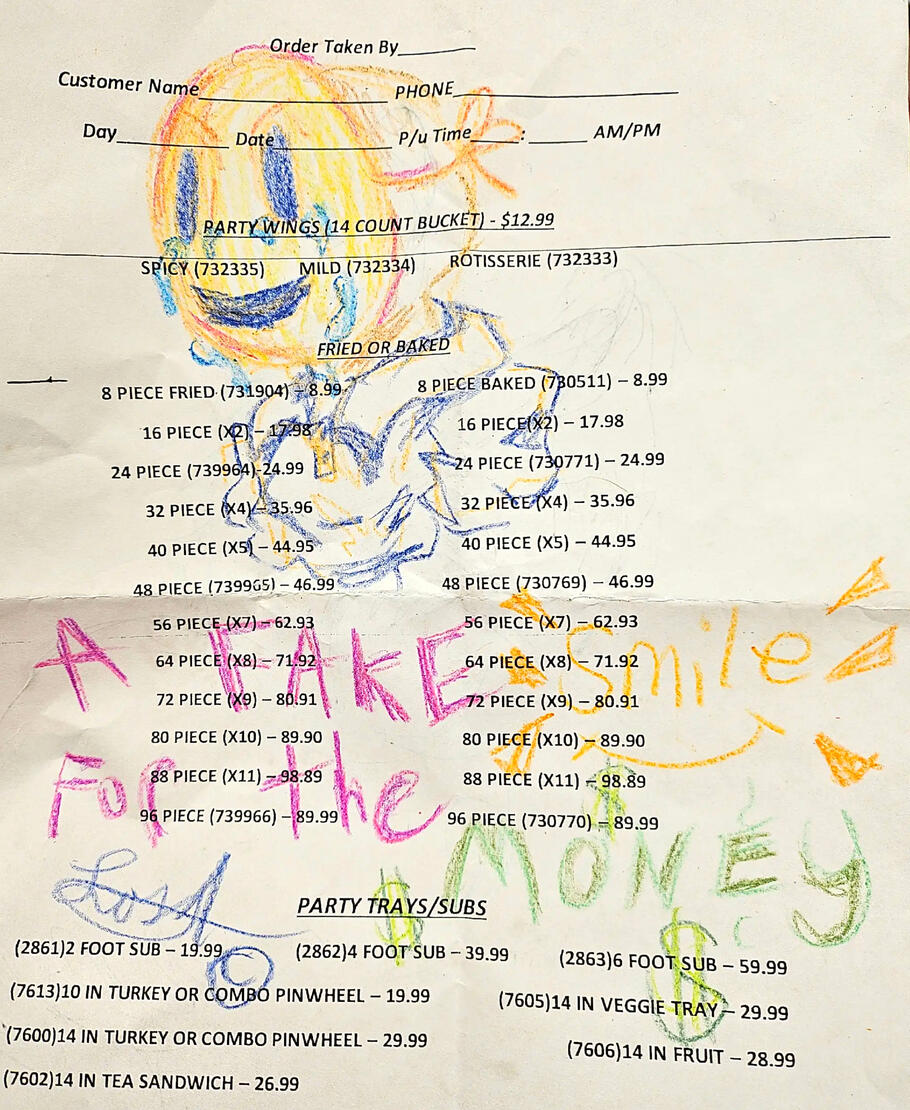 Order Taken By__________
Customer Name______________________ PHONE__________________________
Day_____________ Date_____________ P/u Time_____:_______ AM/PM
PARTY WINGS (14 COUNT BUCKET) - $12.99
SPICY (732335) MILD (732334) ROTISSERIE (732333)
FRIED OR BAKED
8 PIECE FRIED (731904) – 8.99 8 PIECE BAKED (730511) – 8.99
16 PIECE (X2) – 17.98 16 PIECE(X2) – 17.98
24 PIECE (739964)-24.99 24 PIECE (730771) – 24.99
32 PIECE (X4) – 35.96 32 PIECE (X4) – 35.96
40 PIECE (X5) – 44.95 40 PIECE (X5) – 44.95
48 PIECE (739965) – 46.99 48 PIECE (730769) – 46.99
56 PIECE (X7) – 62.93 56 PIECE (X7) – 62.93
A FAKE Smile
64 PIECE (X8) – 71.92 64 PIECE (X8) – 71.92
72 PIECE (X9) – 80.91 72 PIECE (X9) – 80.91
80 PIECE (X10) – 89.90 80 PIECE (X10) – 89.90
88 PIECE (X11) – 98.89 88 PIECE (X11) – 98.89
For the
96 PIECE (739966) – 89.99 96 PIECE (730770) – 89.99
$ MONEY
$ $
PARTY TRAYS/SUBS
(2861)2 FOOT SUB – 19.99 (2862)4 FOOT SUB – 39.99 (2863)6 FOOT SUB – 59.99
©
(7613)10 IN TURKEY OR COMBO PINWHEEL – 19.99 (7605)14 IN VEGGIE TRAY – 29.99
(7600)14 IN TURKEY OR COMBO PINWHEEL – 29.99 (7606)14 IN FRUIT – 28.99
(7602)14 IN TEA SANDWICH – 26.99